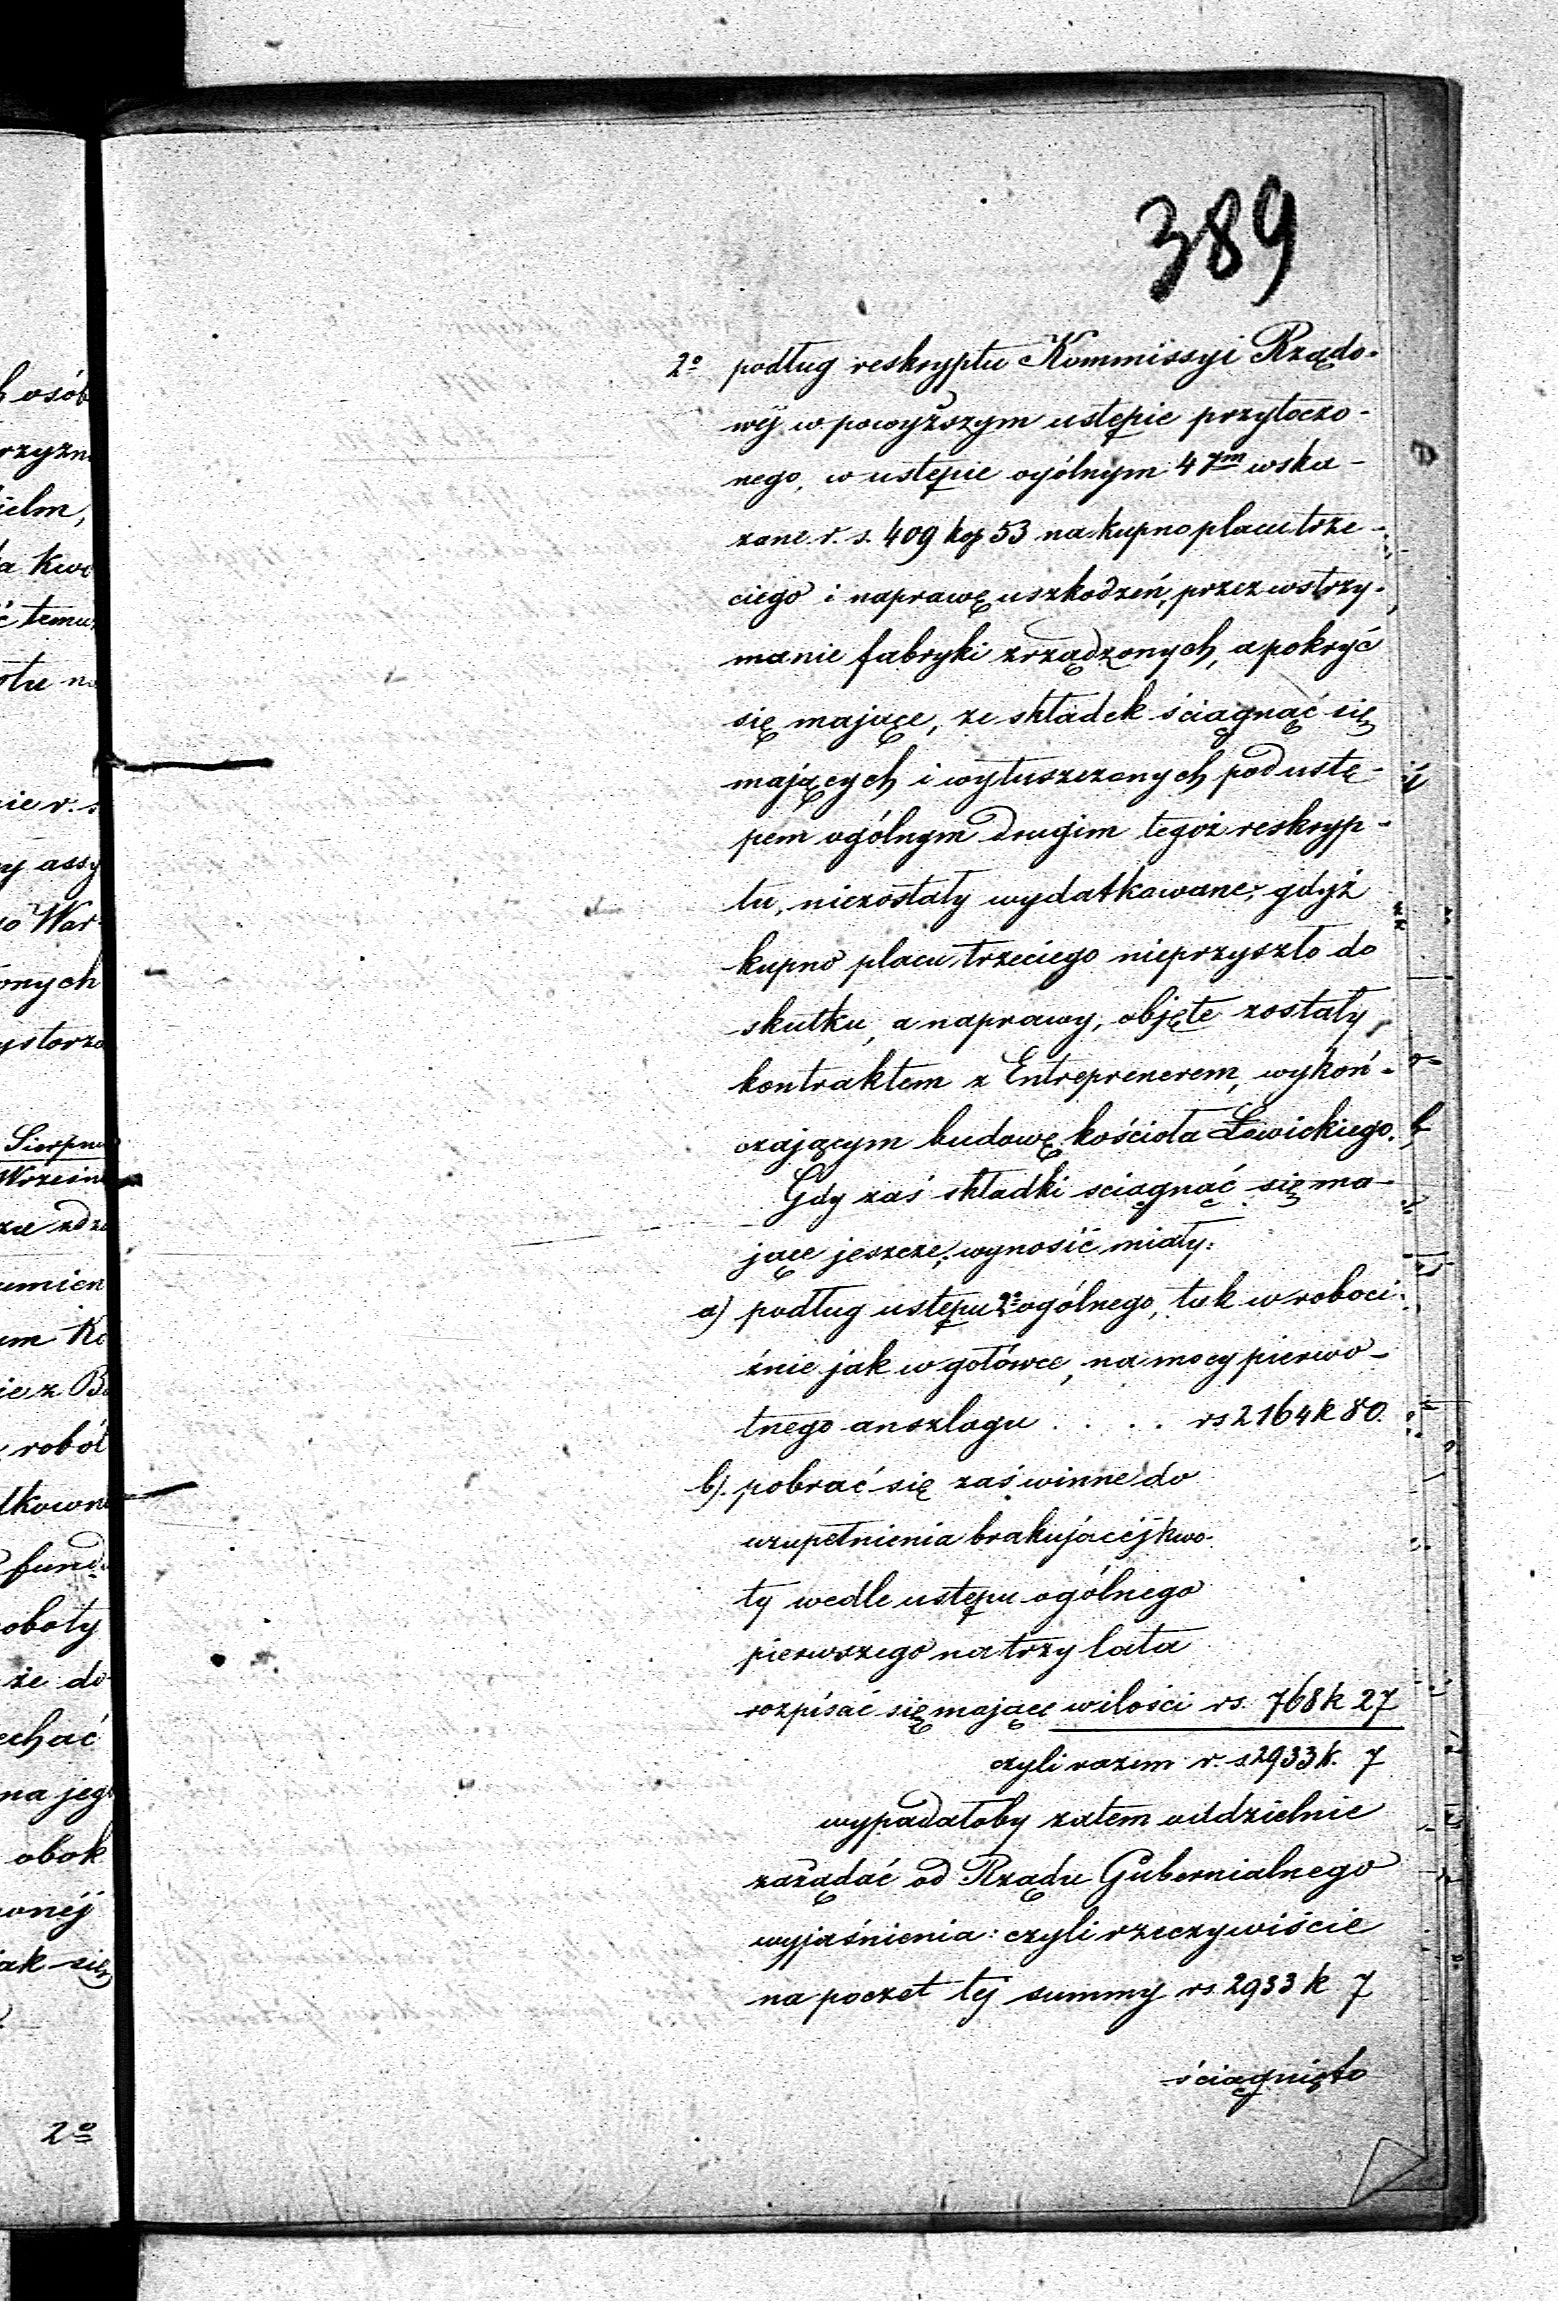 389
2º podług reskryptu Kommissyi Rządo-
wéj w powyższym ustępie przytoczo-
nego, w ustępie ogólnym 4ym wska-
zane r. s. 409 kop 53 na kupno placu trze-
ciego i naprawę uszkodzeń, przez wstrzy-
manie fabryki zrządzonych, a pokryć
się mające, ze składek ściągnąć się
mających i wyłuszczonych pod ustę-
pem ogólnym drugim tegoż reskryp-
tu, niezostały wydatkowane; gdyż
kupno placu trzeciego nieprzyszło do
skutku, a naprawy, objęte zostały
kontraktem z Entreprenerem, wykoń-
czającym budowę kościoła Łowickiego.
Gdy zaś składki sciągnąć się ma-
jące jeszcze, wynosić miały:
a) podług ustępu 2º ogólnego, tak w roboci-
źnie jak w gotówce, na mocy pierwo-
tnego anszlagu . . . . rs 2164 k 80.
b). pobrać się zaś winne do
uzupełnienia brakującéj kwo-
ty wedle ustępu ogólnego
pierwszego na trzy lata
rozpisać się mające w ilości rs. 768 k 27
czyli razem r. s 2933 k. 7
wypadałoby zatem oddzielnie
zażądać od Rządu Gubernialnego
wyjaśnienia: czyli rzeczywiście
na poczet téj summy rs. 2933 k 7
ściągnięto
2º